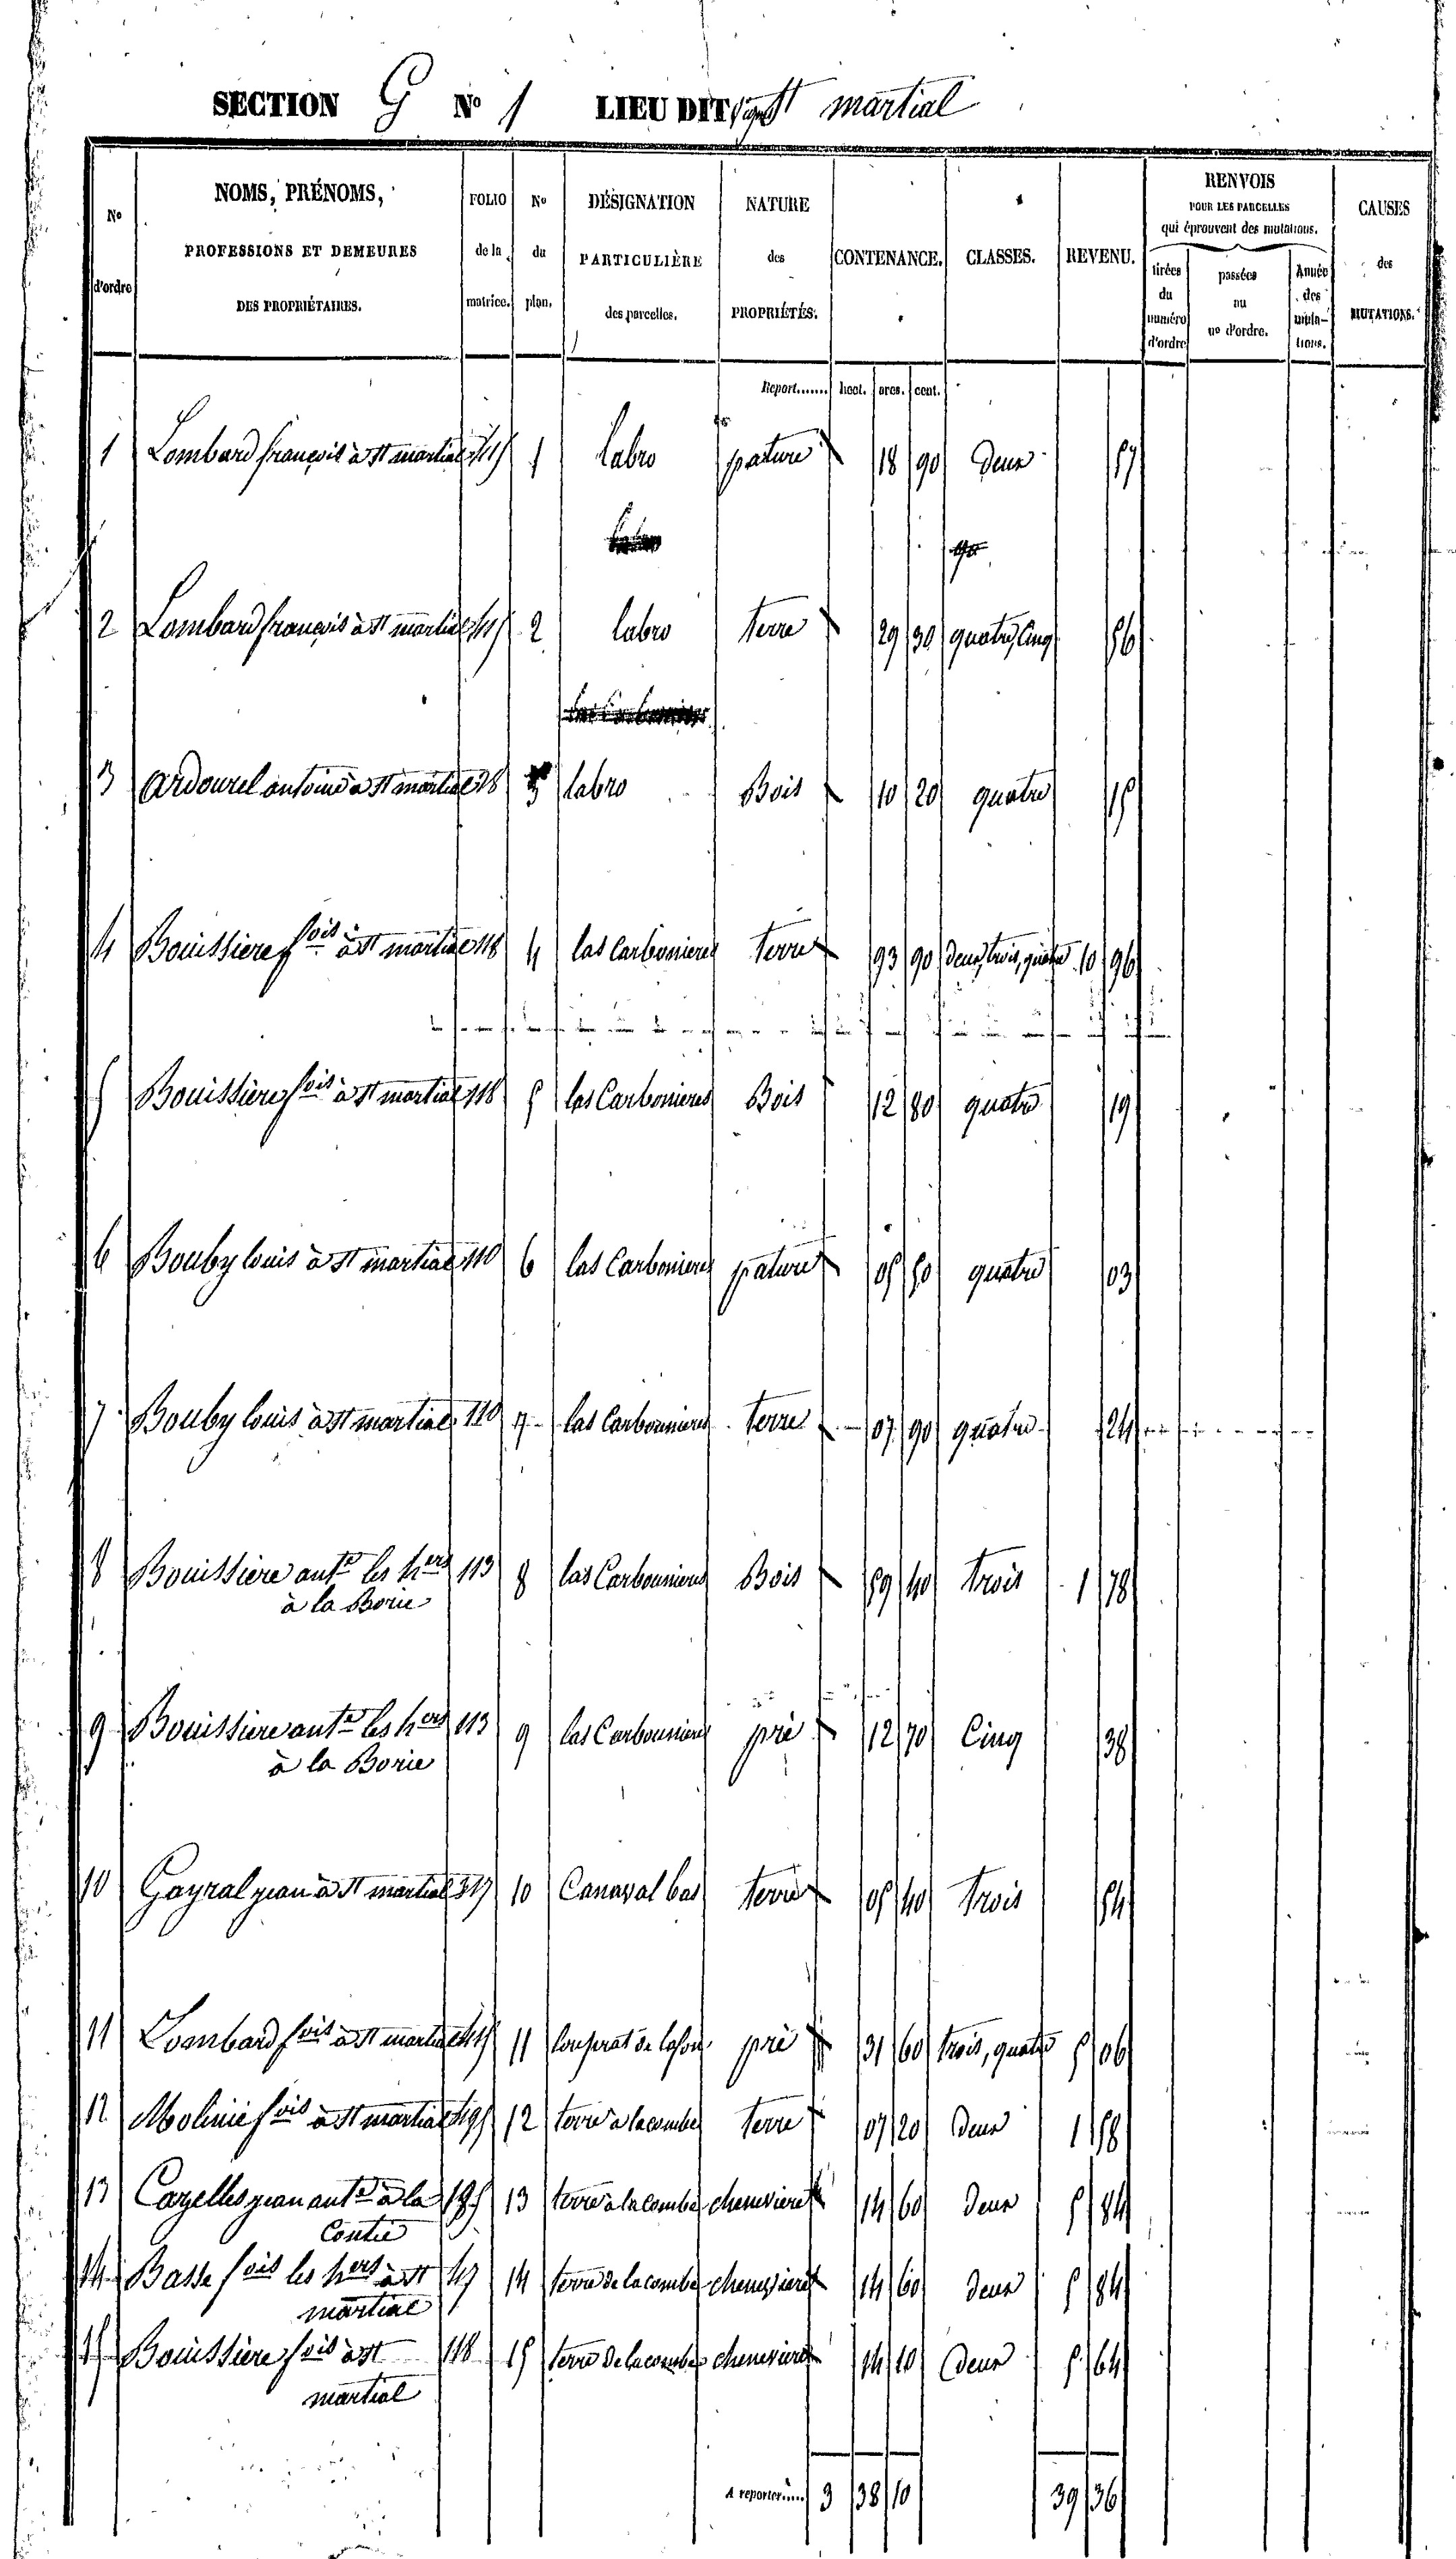 SECTION G No 1 LIEU DIT St martial
No d'ordre
NOMS, PRÉNOMS, PROFESSIONS ET DEMEURES DES PROPRIÉTAIRES.
FOLIO de la matrice.
No du plan.
DÉSIGNATION PARTICULIÈRE des parcelles.
NATURE des PROPRIÉTÉS.
CONTENANCE.
CLASSES.
REVENU.
RENVOIS POUR LES PARCELLES qui éprouvent des mutations.
tirées du numéro d'ordre
passées au no d'ordre.
Année des mutations.
CAUSES des MUTATIONS.
Report....... hect. ares. cent.
1 Lombard françois à st martial 415 1 labro pature 18 90 deux 57
2 Lombard françois à st martial 415 2 labro terre 29 30 quatre, cinq 56
3 Ardourel antoine à st martial 28 3 labro Bois 10 20 quatre 15
4 Bouissiere fois à st martial 118 4 las Carbonieres terre 93 90 deux, trois, quatre 10 96
5 Bouissiere fois à st martial 118 5 las Carbonieres Bois 12 80 quatre 19
6 Bouby louis à st martial 110 6 las Carbonieres pature 05 50 quatre 03
7 Bouby louis à st martial 110 7 las Carbounieres terre 07 90 quatre 24
8 Bouissiere ante les hers 113 8 las Carbounieres Bois 59 40 trois 1 78
à la Borie
9 Bouissiere ante les hers 113 9 las Carbounieres pré 12 70 Cinq 38
à la Borie
10 Gayral jean à st martial 317 10 Canaval bas terre 05 40 trois 54
11 Lombard fois à st martial 415 11 pré 31 60 trois, quatre 5 06
12 Molinié fois à st martial 495 12 terre à lacombe terre 07 20 deux 1 58
13 Cazelles jean ante à la 185 13 terre à la combe cheneviere 14 60 deux 5 84
Contie
14 Basse fois les hers à st 47 14 terre de la combe cheneviere 14 60 deux 5 84
martial
15 Bouissiere fois à st 118 15 terre de lacombe cheneviere 14 10 deux 5 64
martial
A reporter..... 3 38 10 39 36